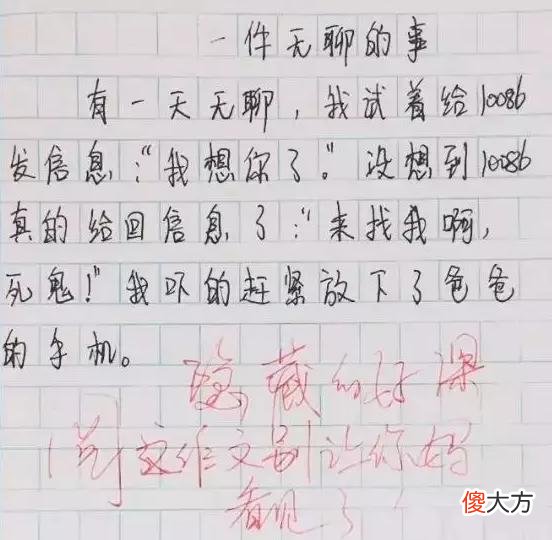 一件无聊的事
有一天无聊，我试着给10086
发信息："我想你了。"没想到10086
真的给回信息了："来找我啊，
死鬼！"我吓的赶紧放下了爸爸
的手机。
隐藏的好深
这作文别让你妈
看见了！
傻大方